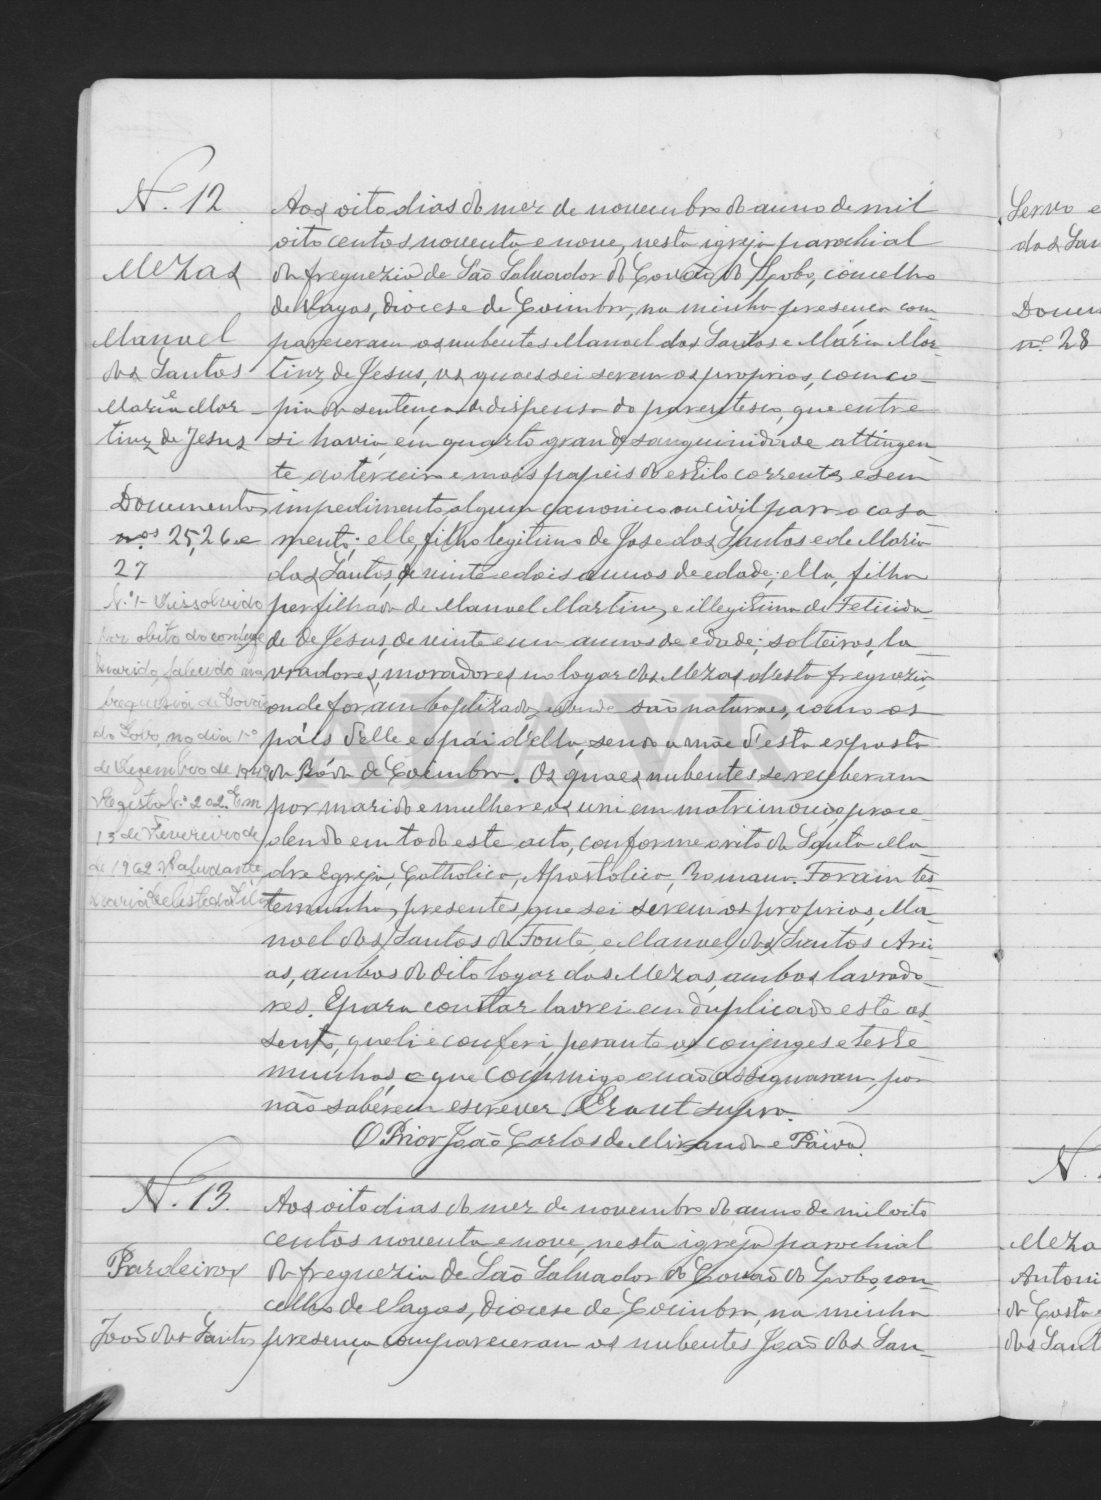 N. 12
Mezas
Manoel
dos Santos
e
Maria Mar-
tinz de Jesus
Documentos
nos 25, 26 e
27
N.º 1 - Dissolvido
por obito do conjuge
marido, falecido na
freguesia de Covão
do Lobo, no dia 1º
de Dezembro de 1949
Registo N.º 202. Em
13 de Fevereiro de
de 1962. O Ajudante,
Aos oito dias do mez de novembro do anno de mil
oito centos noventa e nove, nesta igreja parochial
da freguezia de São Salvador do Covão do Lobo, concelho
de Vagos, diocese de Coimbra, na minha presença com
pareceram os nubentes Manoel dos Santos e Maria Mar-
tinz de Jesus, os quaes sei serem os proprios, com co-
pia da sentença de dispensa do parentesco, que entre
si havia em quarto grau de sanguinidade attingen-
te ao terceiro e mais papeis do estilo correntes e sem
impedimento algum canonico ou civil para o casa-
mento; elle, filho legitimo de Jose dos Santos e de Maria
dos Santos, de vinte e dois annos de edade; ella, filha
perfilhada de Manuel Martinz, e illegitima de Felicida-
de de Jesus, de vinte e um annos de edade; solteiros, la-
vradores, moradores no logar das Mezas d'esta freguezia,
onde foram baptizados, e donde são naturaes, como os
páis d'elle e o pái d'ella, sendo a mãe d'esta exposta
da Róda de Coimbra. Os quaes nubentes se receberam
por marido e mulher e os uni em matrimonio proce-
dendo em todo este acto, conforme o rito da Santa Ma-
dre Egreja, Catholica, Apostolica, Romana. Foram tes-
temunhas presentes, que sei serem os proprios, Ma-
noel dos Santos da Fonte, e Manuel dos Santos Arei-
as, ambos do dito logar das Mezas, ambos lavrado-
res. E para constar lavrei em duplicado este as-
sento, que li e conferi perante os conjuges e teste-
munhas, e que commigo não assignaram, por
não saberem escrever. Era ut supra.
O Prior João Carlos de Miranda e Paiva.
N. 13.
Pardeiros
João dos Santos
Aos oito dias do mez de novembro do anno de mil oito
centos noventa e nove, nesta igreja parochial
da freguezia de São Salvador do Covão do Lobo, con-
celho de Vagos, diocese de Coimbra, na minha
presença compareceram os nubentes João dos San-
Servo e
dos San
Docum
nº 28
N.
Meza
Antoni
da Costa
dos Sant